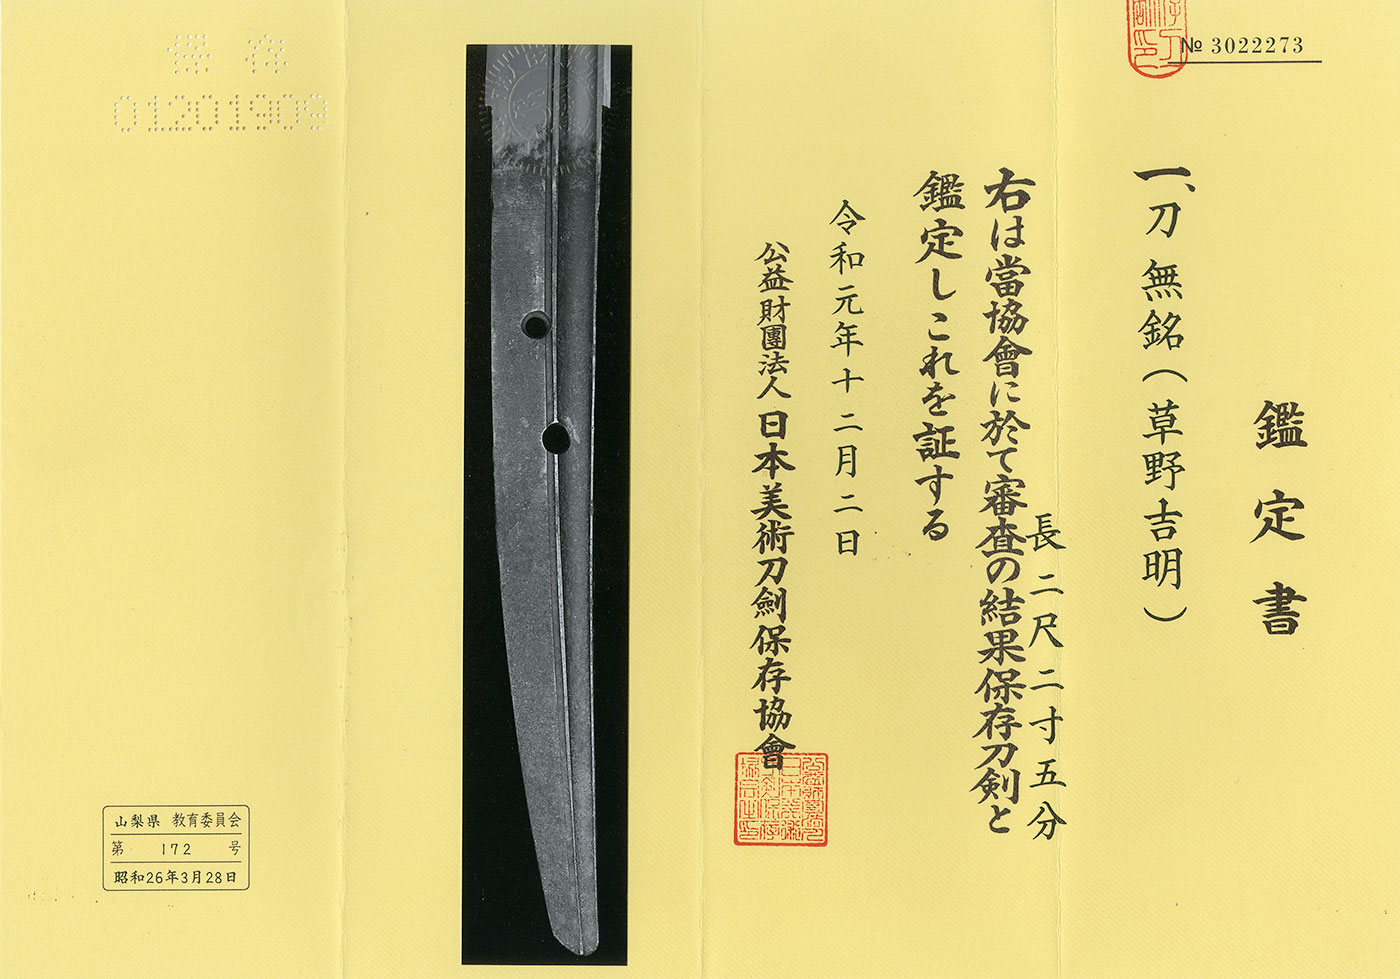 № 3022273
鑑定書
一、刀 無銘(草野吉明)
長 二尺二寸五分
右は當協會に於て審査の結果保存刀剣と
鑑定しこれを証する
令和元年十二月二日
公益財團法人 日本美術刀劍保存協會
保存
01201909
山梨県 教育委員会
第 172 号
昭和26年3月28日